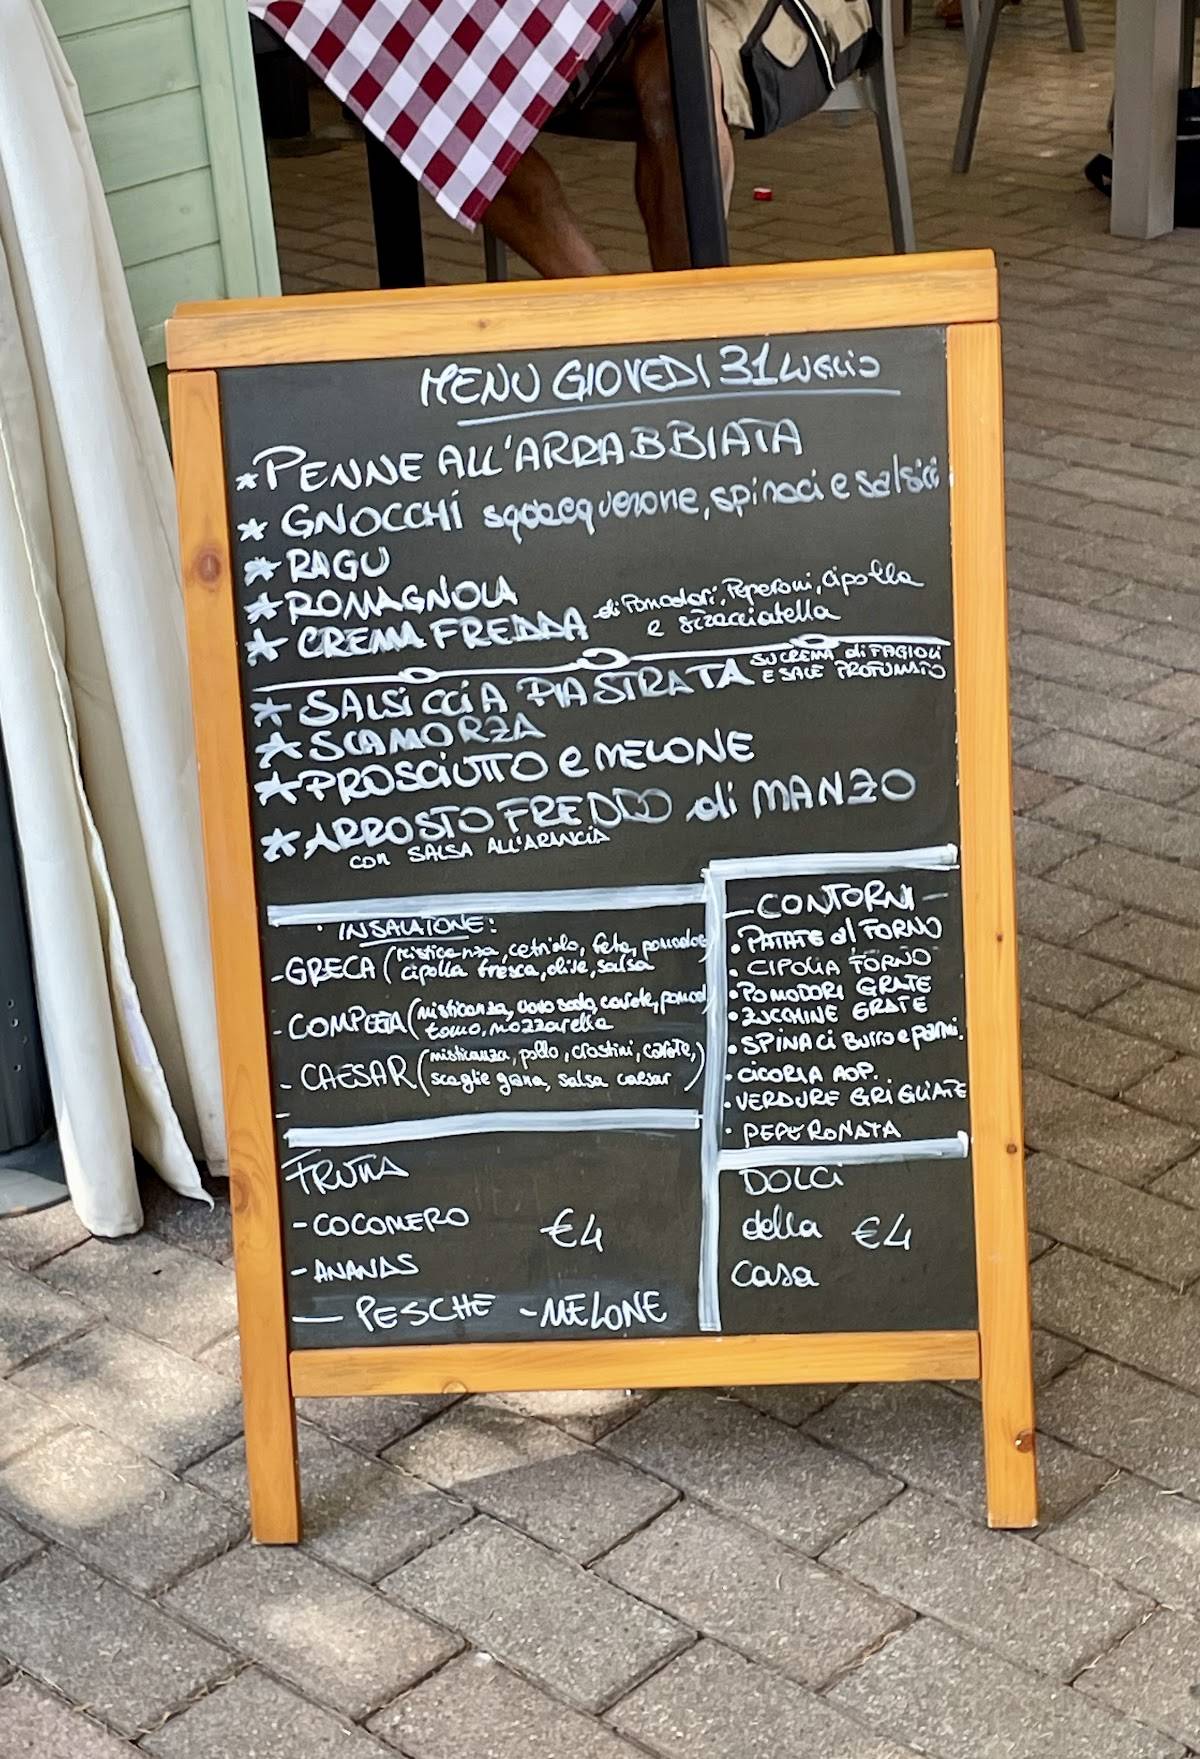 MENU GIOVEDI 31 LUGLIO
* PENNE ALL'ARRABBIATA
* GNOCCHI squacquerone, spinaci e salsicci
* RAGU
* ROMAGNOLA
* CREMA FREDDA di Pomodori, Peperoni, cipolla
e stracciatella
* SALSICCIA PIASTRATA SU CREMA di FAGIOLI
E SALE PROFUMATO
* SCAMORZA
* PROSCIUTTO e MELONE
* ARROSTO FREDDO di MANZO
con SALSA ALL'ARANCIA
INSALATONE:
- GRECA (misticanza, cetriolo, feta, pomodor
cipolla fresca, olive, salsa
- COMPLETA (misticanza, uovo sodo, carote, pomod
tonno, mozzarella
- CAESAR (misticanza, pollo, crostini, carote,
scaglie grana, salsa caesar)
FRUTTA
- COCOMERO €4
- ANANAS
- PESCHE - MELONE
- CONTORNI -
• PATATE al FORNO
• CIPOLLA FORNO
• POMODORI GRATE
• ZUCCHINE GRATE
• SPINACI Burro e parmi.
• CICORIA AOP.
• VERDURE GRIGLIATE
• PEPERONATA
DOLCI
della €4
casa